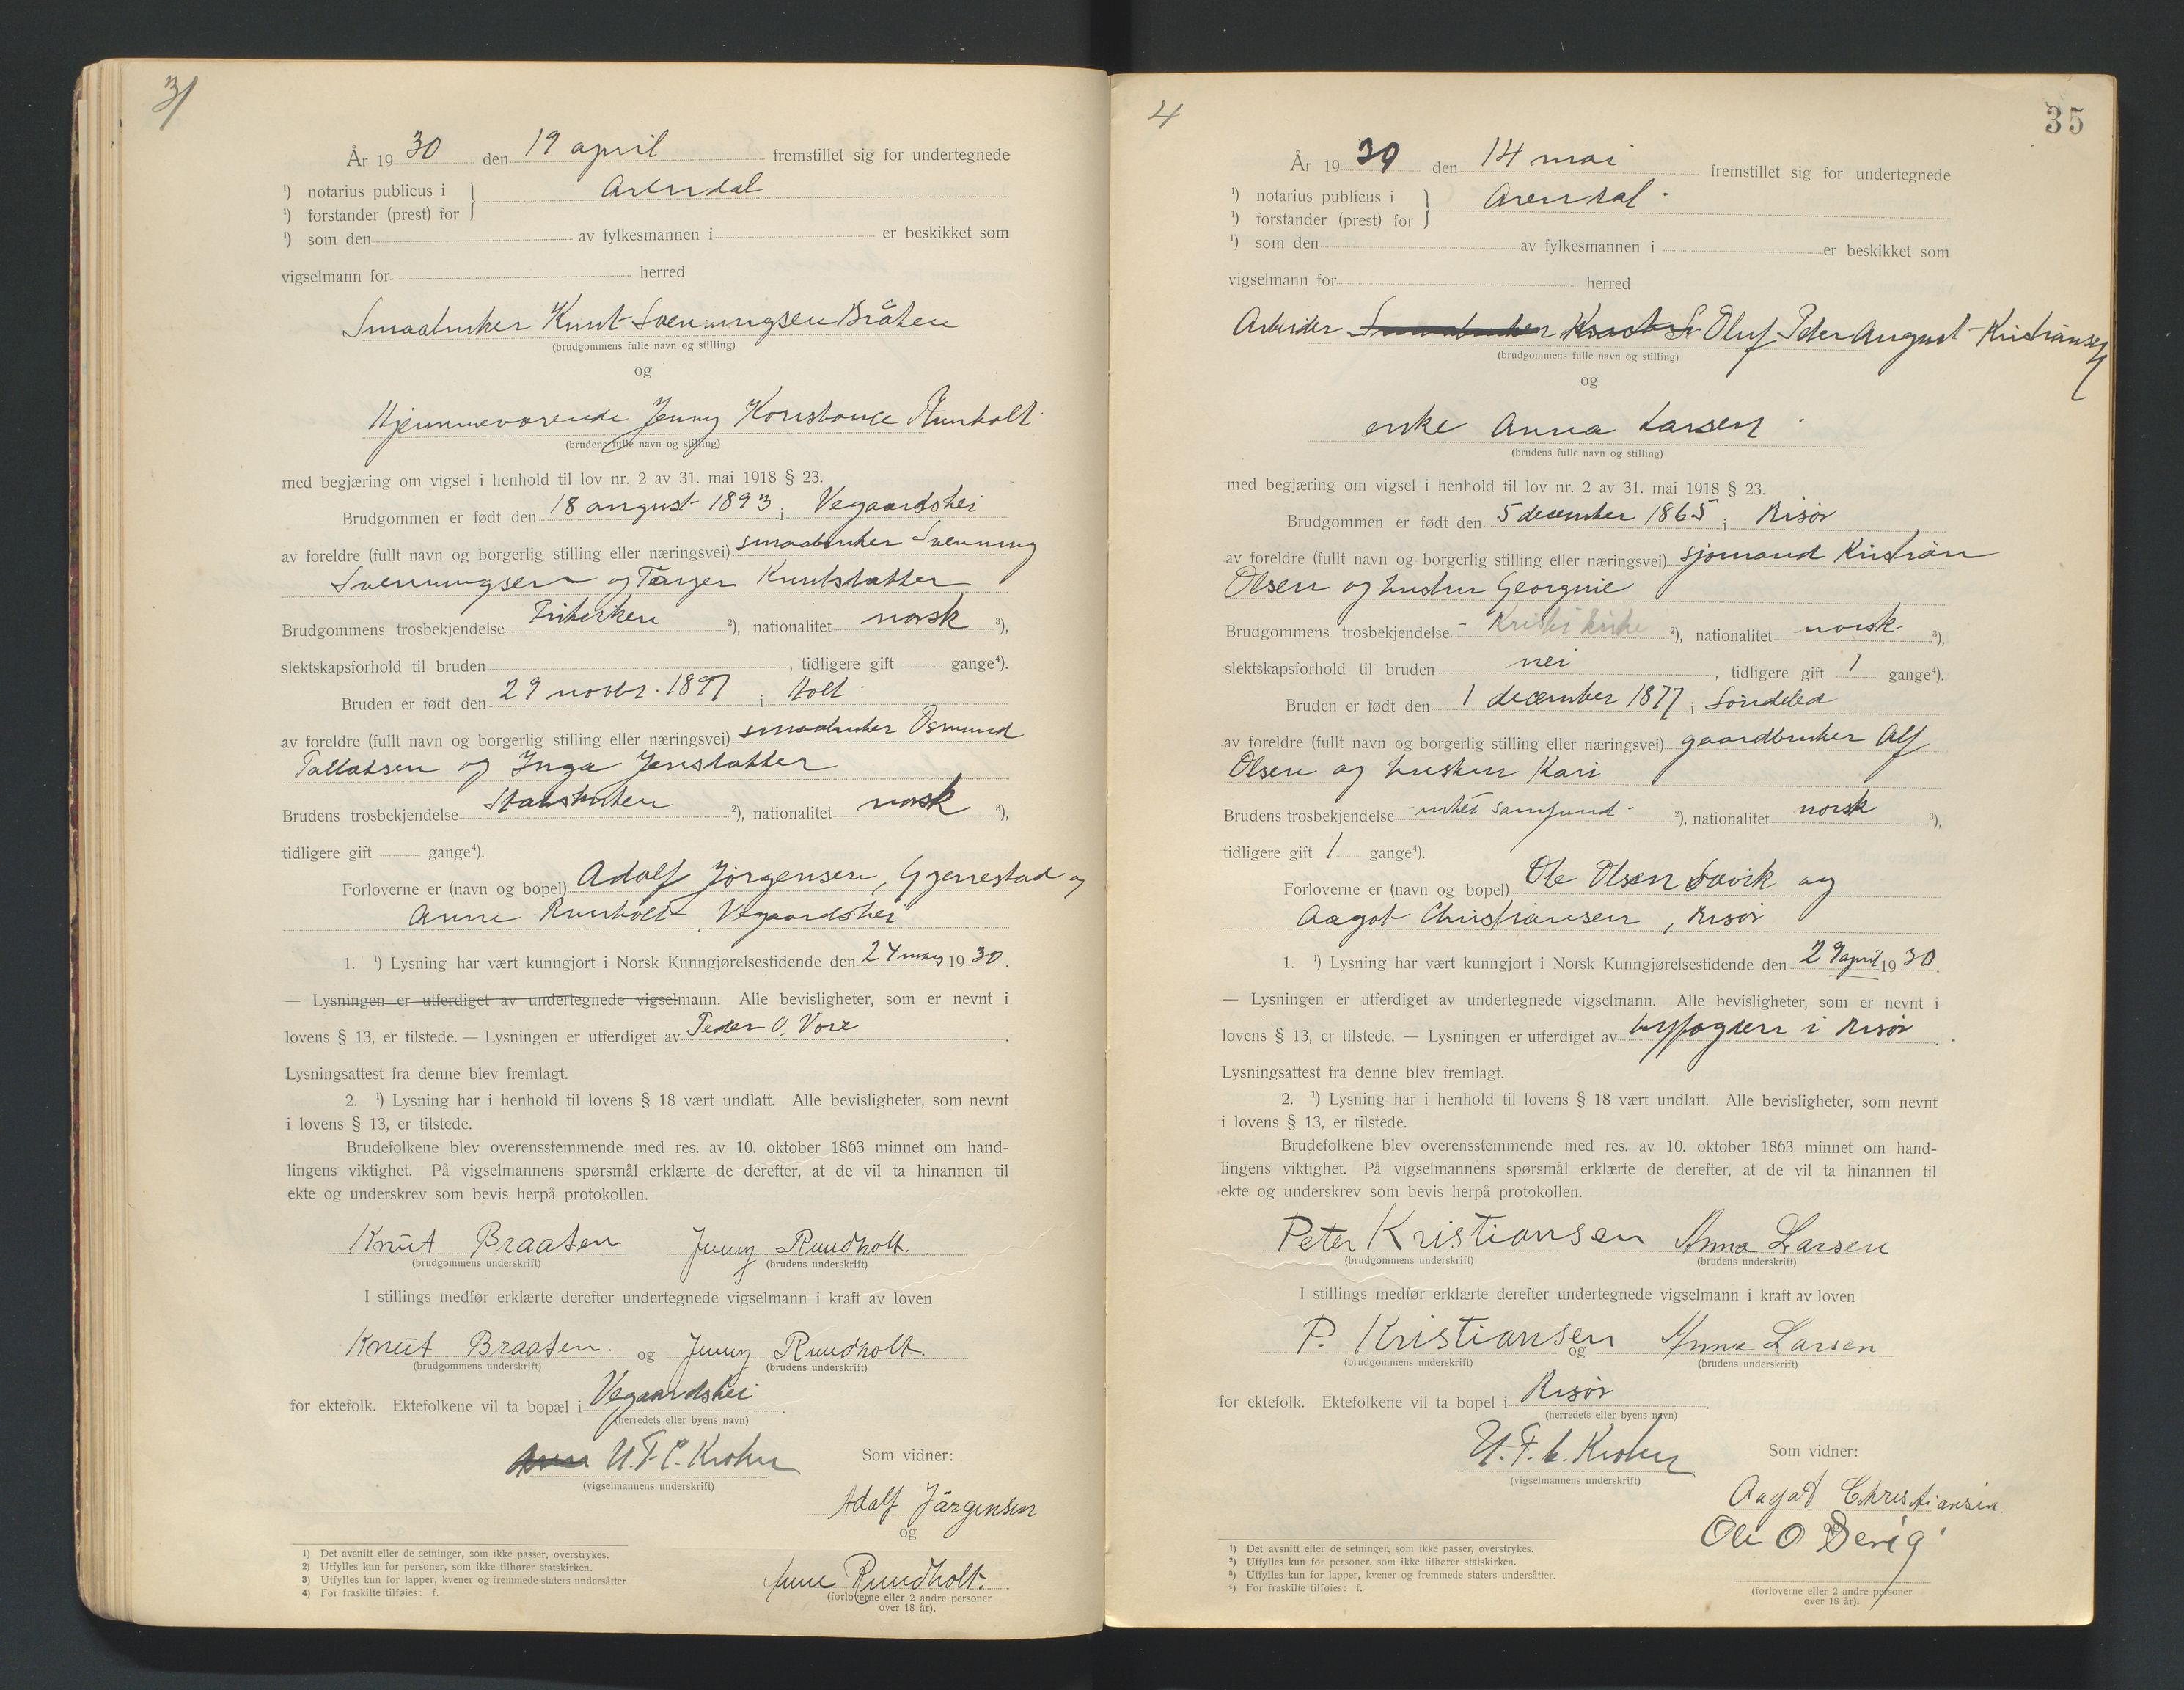 3/
År 19 30 den 19 april fremstillet sig for undertegnede
¹) notarius publicus i } Arendal
¹) forstander (prest) for
¹) som den av fylkesmannen i er beskikket som
vigselmann for herred
Smaabruker Knut Svenningsen Bråten
(brudgommens fulle navn og stilling)
og
Hjemmeværende Jenny Konstance Runholt
(brudens fulle navn og stilling)
med begjæring om vigsel i henhold til lov nr. 2 av 31. mai 1918 § 23.
Brudgommen er født den 18 august 1893 i Vegaardshei
av foreldre (fullt navn og borgerlig stilling eller næringsvei) smaabruker Svenning
Svenningsen og Targer Knutsdatter
Brudgommens trosbekjendelse Frikirken ²), nationalitet norsk ³),
slektskapsforhold til bruden , tidligere gift gange⁴).
Bruden er født den 29 novbr. 1897 i Holt
av foreldre (fullt navn og borgerlig stilling eller næringsvei) smaabruker Osmund
Tallaksen og Inga Jensdatter
Brudens trosbekjendelse Statskirken ²), nationalitet norsk ³),
tidligere gift gange⁴).
Forloverne er (navn og bopel) Adolf Jörgensen, Gjerrestad og
Anne Runholt, Vegaardshei
1. ¹) Lysning har vært kunngjort i Norsk Kunngjørelsestidende den 24 mars 19 30.
— Lysningen er utferdiget av undertegnede vigselmann. Alle bevisligheter, som er nevnt i
lovens § 13, er tilstede. — Lysningen er utferdiget av Peder O. Vore.
Lysningsattest fra denne blev fremlagt.
2. ¹) Lysning har i henhold til lovens § 18 vært undlatt. Alle bevisligheter, som nevnt
i lovens § 13, er tilstede.
Brudefolkene blev overensstemmende med res. av 10. oktober 1863 minnet om hand-
lingens viktighet. På vigselmannens spørsmål erklærte de derefter, at de vil ta hinannen til
ekte og underskrev som bevis herpå protokollen.
Knut Braaten Jenny Rundholt.
(brudgommens underskrift) (brudens underskrift)
I stillings medfør erklærte derefter undertegnede vigselmann i kraft av loven
Knut Braaten. og Jenny Rundholt.
(brudgommens underskrift) (brudens underskrift)
for ektefolk. Ektefolkene vil ta bopæl i Vegaardshei.
(herredets eller byens navn)
U. F. C. Krohn Som vidner:
(vigselmannens underskrift)
Adolf Järgensen
og
Anne Rundholt.
(forloverne eller 2 andre personer
over 18 år).
1) Det avsnitt eller de setninger, som ikke passer, overstrykes.
2) Utfylles kun for personer, som ikke tilhører statskirken.
3) Utfylles kun for lapper, kvener og fremmede staters undersåtter
4) For fraskilte tilføies: f.
4
35
År 19 30 den 14 mai fremstillet sig for undertegnede
¹) notarius publicus i } Arendal
¹) forstander (prest) for
¹) som den av fylkesmannen i er beskikket som
vigselmann for herred
Arbeider Smaabruker Knut S Oluf Peter August Kristiansen
(brudgommens fulle navn og stilling)
og
enke Anna Larsen
(brudens fulle navn og stilling)
med begjæring om vigsel i henhold til lov nr. 2 av 31. mai 1918 § 23.
Brudgommen er født den 5 december 1865 i Risör
av foreldre (fullt navn og borgerlig stilling eller næringsvei) sjømand Kristian
Olsen og hustru Georgine
Brudgommens trosbekjendelse - Kristi kirke ²), nationalitet norsk ³),
slektskapsforhold til bruden nei , tidligere gift 1 gange⁴).
Bruden er født den 1 december 1877 i Söndeled
av foreldre (fullt navn og borgerlig stilling eller næringsvei) gaardbruker Alf
Olsen og hustru Kari
Brudens trosbekjendelse - intet samfund - ²), nationalitet norsk ³),
tidligere gift 1 gange⁴).
Forloverne er (navn og bopel) Ole Olsen Sævik og
Aagot Christiansen, Risör
1. ¹) Lysning har vært kunngjort i Norsk Kunngjørelsestidende den 29 april 19 30.
— Lysningen er utferdiget av undertegnede vigselmann. Alle bevisligheter, som er nevnt i
lovens § 13, er tilstede. — Lysningen er utferdiget av byfogden i Risör.
Lysningsattest fra denne blev fremlagt.
2. ¹) Lysning har i henhold til lovens § 18 vært undlatt. Alle bevisligheter, som nevnt
i lovens § 13, er tilstede.
Brudefolkene blev overensstemmende med res. av 10. oktober 1863 minnet om hand-
lingens viktighet. På vigselmannens spørsmål erklærte de derefter, at de vil ta hinannen til
ekte og underskrev som bevis herpå protokollen.
Peter Kristiansen Anna Larsen
(brudgommens underskrift) (brudens underskrift)
I stillings medfør erklærte derefter undertegnede vigselmann i kraft av loven
P. Kristiansen og Anna Larsen
(brudgommens underskrift) (brudens underskrift)
for ektefolk. Ektefolkene vil ta bopel i Risör.
(herredets eller byens navn)
U. F. C. Krohn Som vidner:
(vigselmannens underskrift)
Aagot Christiansen.
og
Ole O
(forloverne eller 2 andre personer
over 18 år).
1) Det avsnitt eller de setninger, som ikke passer, overstrykes.
2) Utfylles kun for personer, som ikke tilhører statskirken.
3) Utfylles kun for lapper, kvener og fremmede staters undersåtter.
4) For fraskilte tilføies: f.